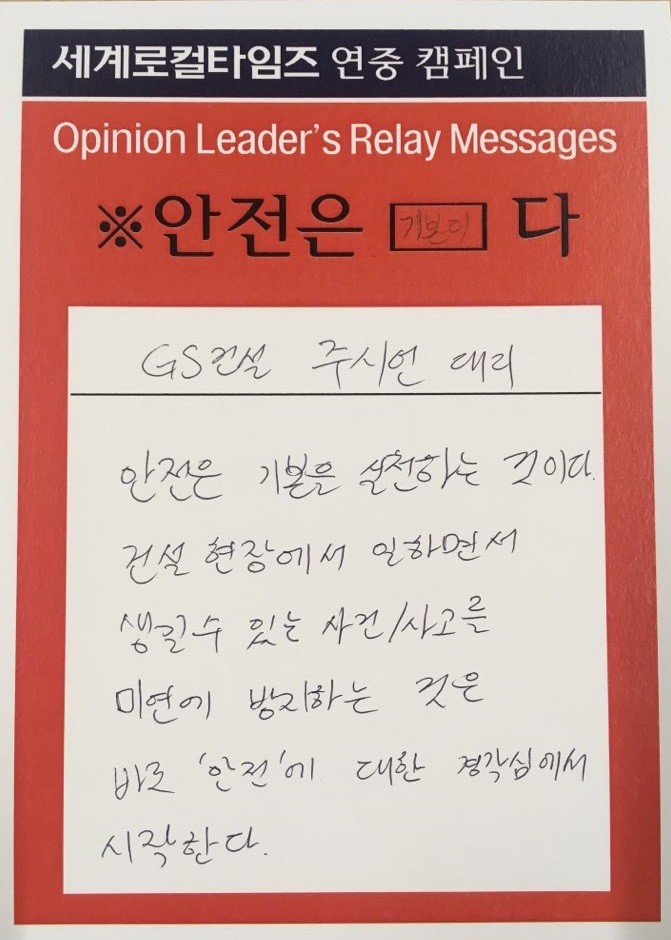 세계로컬타임즈 연중 캠페인
Opinion Leader's Relay Messages
※안전은 기본이 다
GS건설 주시언 대리
안전은 기본을 실천하는 것이다.
건설 현장에서 일하면서
생길수 있는 사건/사고를
미연에 방지하는 것은
바로 '안전'에 대한 경각심에서
시작한다.